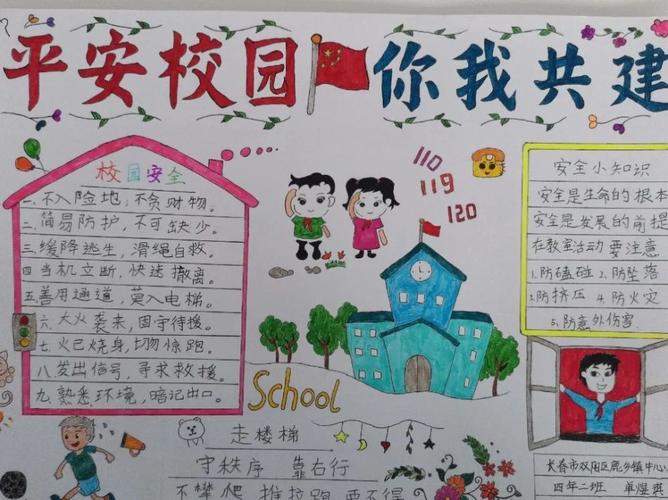 平安校园 你我共建
校园安全
一、不入险地,不贪财物。
二.简易防护,不可缺少。
三.缓降逃生,滑绳自救。
四 当机立断,快速撤离。
五.善用通道,莫入电梯。
六.大火袭来,固守待援。
七.火已烧身,切勿惊跑。
八.发出信号,寻求救援。
九.熟悉环境,暗记出口。
110
119
120
School
安全小知识
安全是生命的根本
安全是发展的前提
在教室活动要注意
1.防磕碰 2.防坠落
3防挤压 4.防火灾
5.防意外伤害
走楼梯
守秩序 靠右行
不攀爬 推拉跑 要不得
长春市双阳区鹿乡镇中心
四年二班